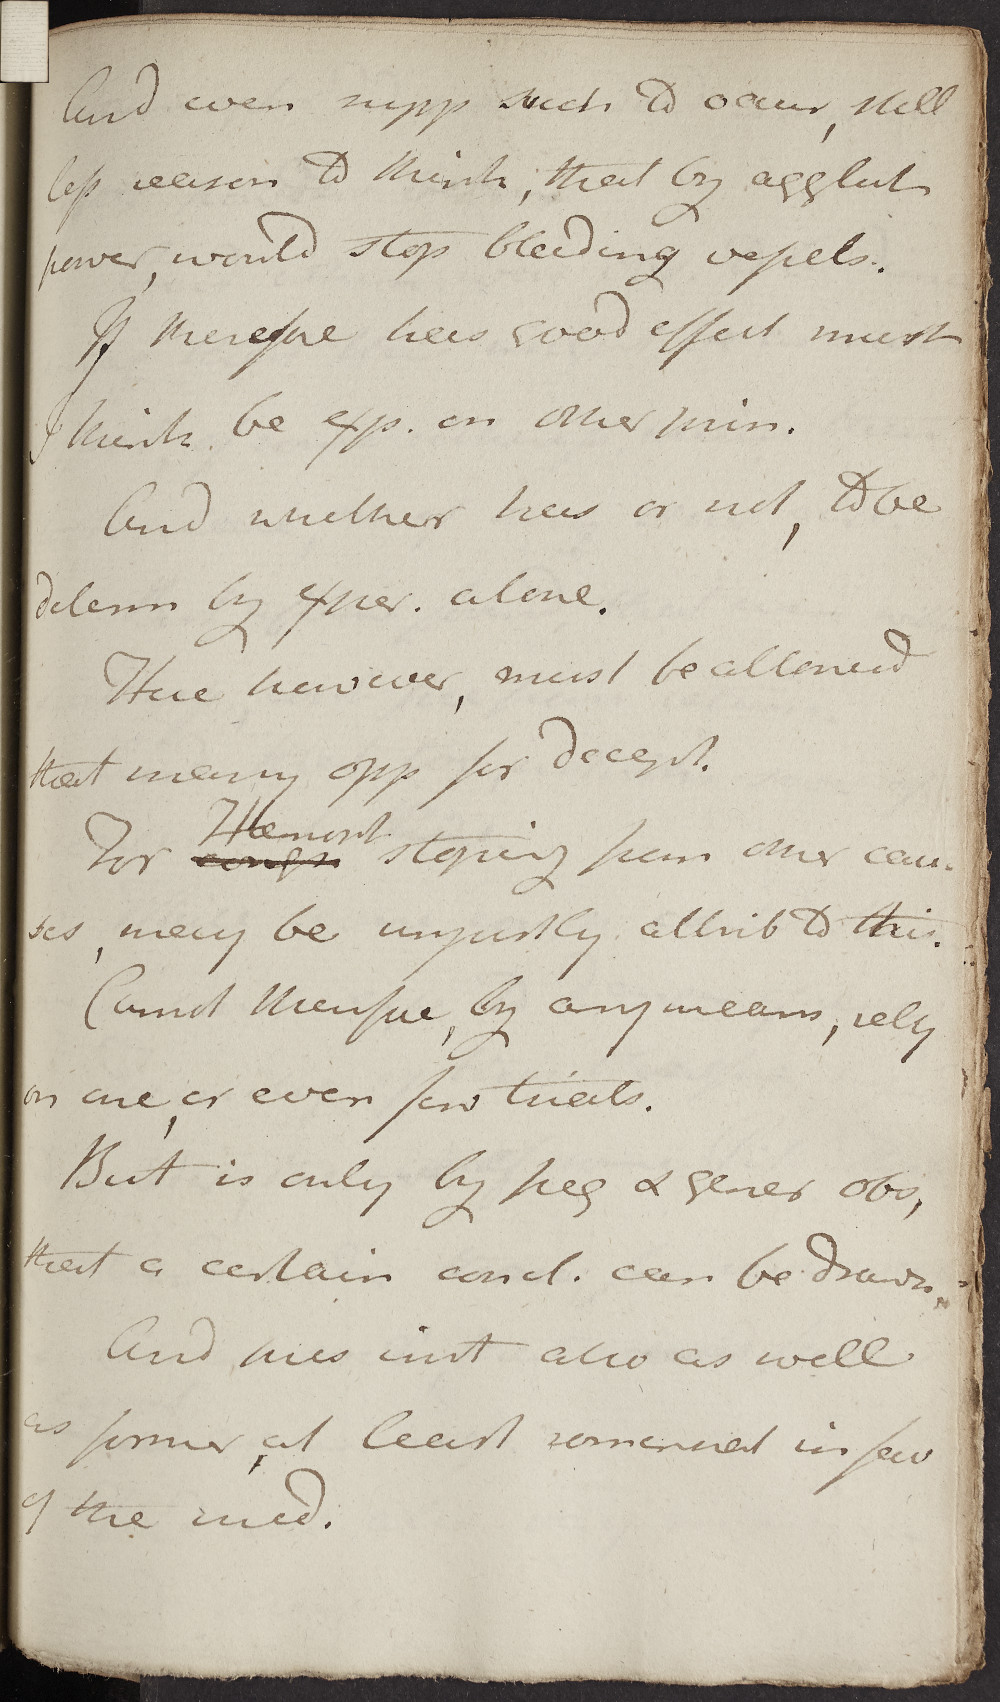 And even supp such to occur, still
less reason to think, that by agglut
power, would stop bleeding vessels.
If therefore has good effect must
I think be exp. on other prin.
And whether has or not, to be
determ by exper. alone.
Here however, must be allowed
that many opp for decept.
For Hemorh stoping from other cau-
ses, may be unjustly attrib to this.
Cannot therefore, by any means, rely
on one, or even few trials.
But is only by freq & gener obs,
that a certain concl. can be drawn.
And this inst also as well
as former, at least somewhat in fav
of the med.